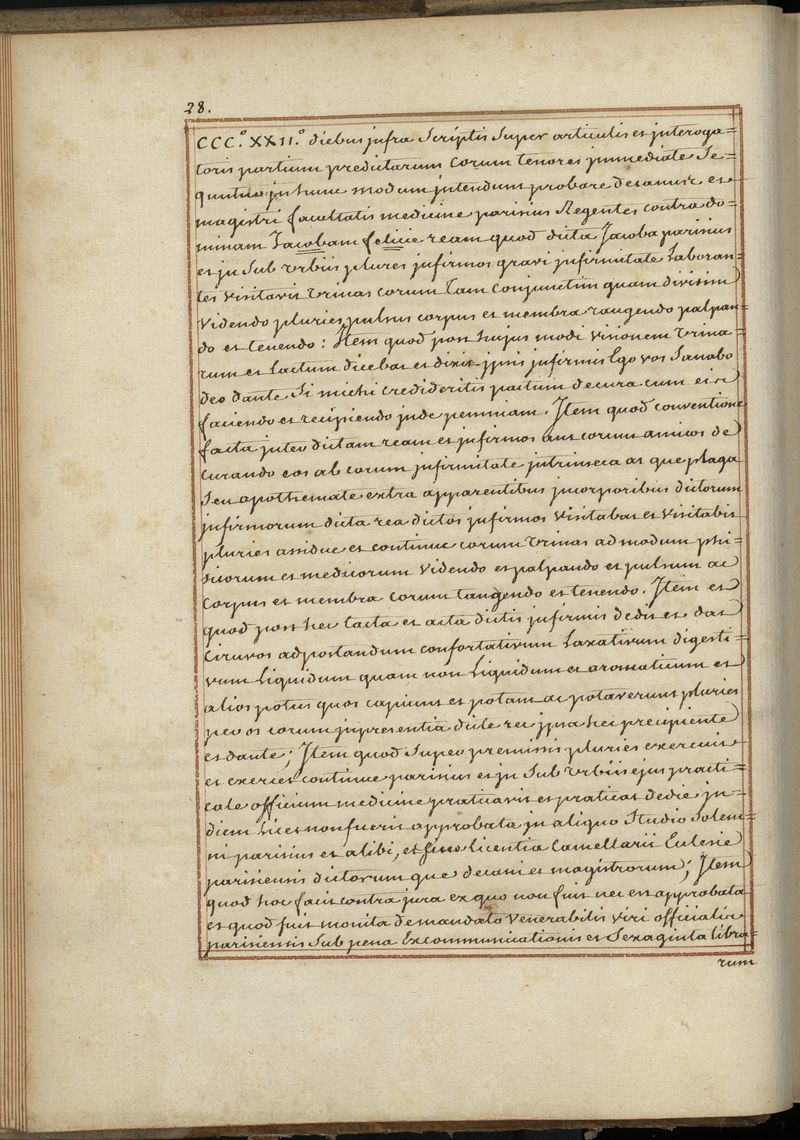 28.
CCC.º XXII.º diebus jnfra Scriptis Super articulis et jnteroga=
toris partium predictarum eorum tenores jmmediate Se=
quntur jn hunc modum jntendunt probare decanus et
magistri facultatis medicine parisius Regentes contra do=
minam Jacobam felicie ream quod dicta Jacoba parisius
et jn Sub Urbiis plures jnfirmos gravi jnfirmitate Laboran=
tes visitavit Urinas eorum tam conjunctim quam divisim
videndo pluries pulsus corpus et membra tangendo palpan=
do et tenendo: Item quod post hujus modi visionem Urina=
rum et tactum dicebat et dixit jpsis jnfirmis Ego vos Sanabo
deo dante Si michi credideritis pactum de cura cum eis
faciendo et recipiendo jnde pecuniam. Jtem quod conventione
facta jnter dictam ream et jnfirmos aut eorum amicos de
curando eos ab eorum jnfirmitate jntrinseca at que plaga
Seu apothemate extra apparentibus jn corporibus dictorum
jnfirmorum dicta rea dictos jnfirmos visitabat et visitabit
pluries assidue et continue eorum Urinas ad modum phi=
sicorum et medicorum videndo et palpando et pulsum ac
corpus et membra eorum tangendo et tenendo. Jtem et
quod post hec tacta et acta dictis jnfirmis dedit et dat
Ciruvos ad postandum confortativum Laxativum digesti=
vum Liquidum quam non Liquidum et aromaticum et
alios potus quos capiunt et potant ac potaverunt pluries
per os eorum jn presentia dicte rei jpsa hec precipiente
et dante; Jtem quod Super premissis pluries exercuit
et exercet continue parisius et jn Sub Urbiis ejus practi=
cale officium medicine praticavit et praticat de die jn
diem Licet non fuerit approbata jn aliquo Studio Solem=
ni parisius et alibi, et Sine Licentia Camellarii Eclesie
parisiensis dictorum que decani et magistrorum; Jtem
quod hoc facit contra jura ex quo non fuit nec est approbata
et quod fuit monita de mandato Venerabilis viri officialis
parisiensis Sub pena Excommunicationis et Sexaginta libra=
rum